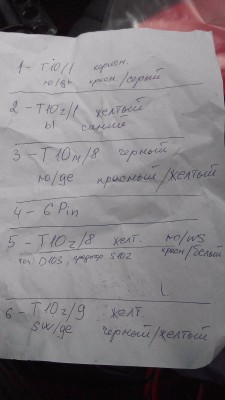 1 - T10/1 коричн.
ro/gr красн/серый
2 - T10z/1 желтый
bl синий
3 - T10m/8 черный
ro/ge красный/желтый
4 - 6 Pin
5 - T10z/8 желт. ro/ws
D103, S102 красн/белый
6 - T10z/9 желт.
sw/ge черный/желтый